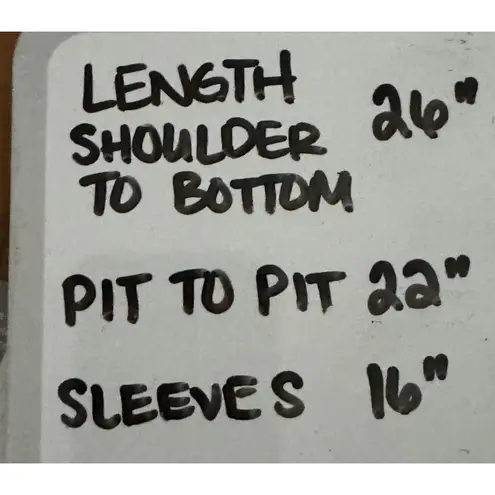 LENGTH
SHOULDER 26"
TO BOTTOM
PIT TO PIT 22"
SLEEVES 16"